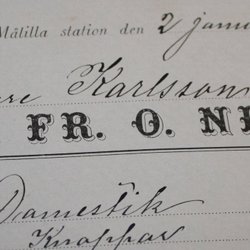 Målilla station den 2 janu
re Karlsson
FR. O. N
Domestik
Knappar